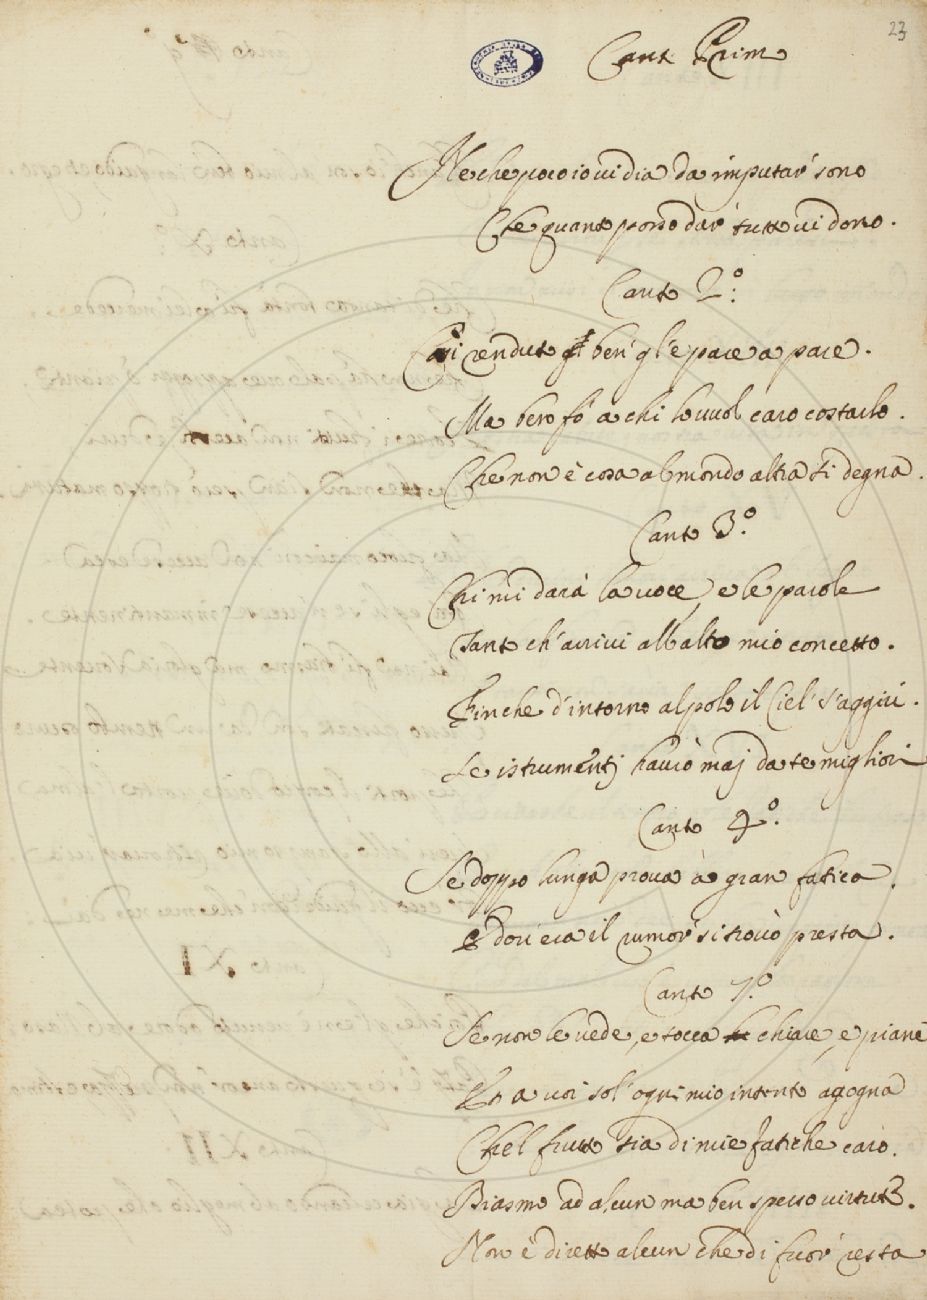 23
Canto Primo
Ne che poco io vi dia da imputar' sono
Che quanto posso dar' tutto vi dono.
Canto 2.º
Cosi renduto ben' gl'è pace a pace.
Ma bero fo' a chi lo vuol caro costarlo.
Che non è cosa al mondo altra si degna.
Canto 3.º
Chi mi darà la voce, e le parole
Tanto ch'arrivi all'alto mio concetto.
Finche d'intorno al polo il Ciel' s'aggiri.
Se istrumenti havrò maj da te migliori
Canto 4.º
Se doppo lunga prova à gran fatica.
E dov'era il rumor' si trovò presta.
Canto 7.º
Se non le vede, e tocca chiare, e piane
Et a voi sol' ogni mio intento agogna
Chel frutto sia di mie fatiche caro.
Biasmo ad alcun ma ben spesso virtute.
Non è diretto alcun che di fuor' resta